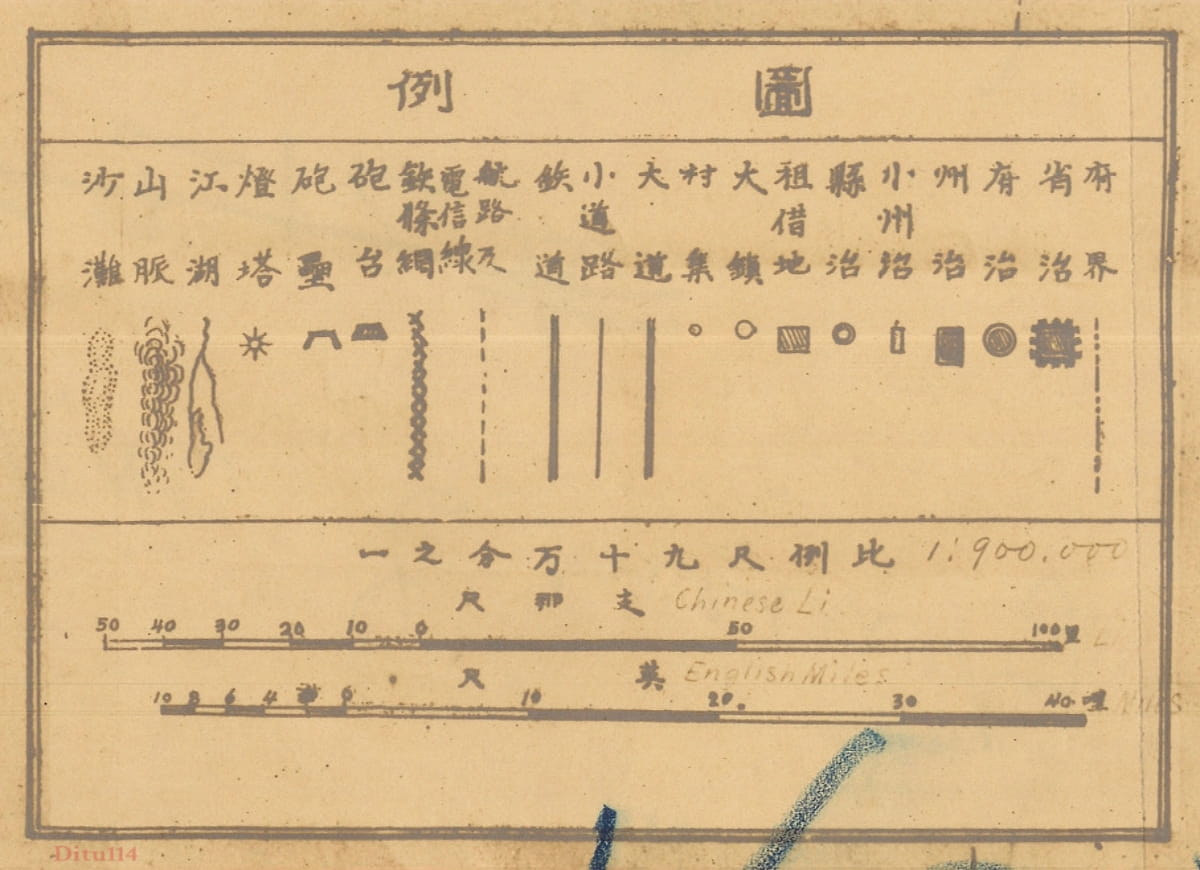 圖例
府界
省治
府治
州治
小州治
縣治
祖借地
大鎖
村集
大道
小道路
鉄道
航路及
電信線
鉄條網
砲台
砲壘
燈塔
江湖
山脈
沙灘
比例尺九十万分之一 1:900.000
支那尺 Chinese Li
50 40 30 20 10 0 50 100里 Li
英尺 English Miles
10 8 6 4 2 0 10 20 30 40 哩 Miles
Ditu114